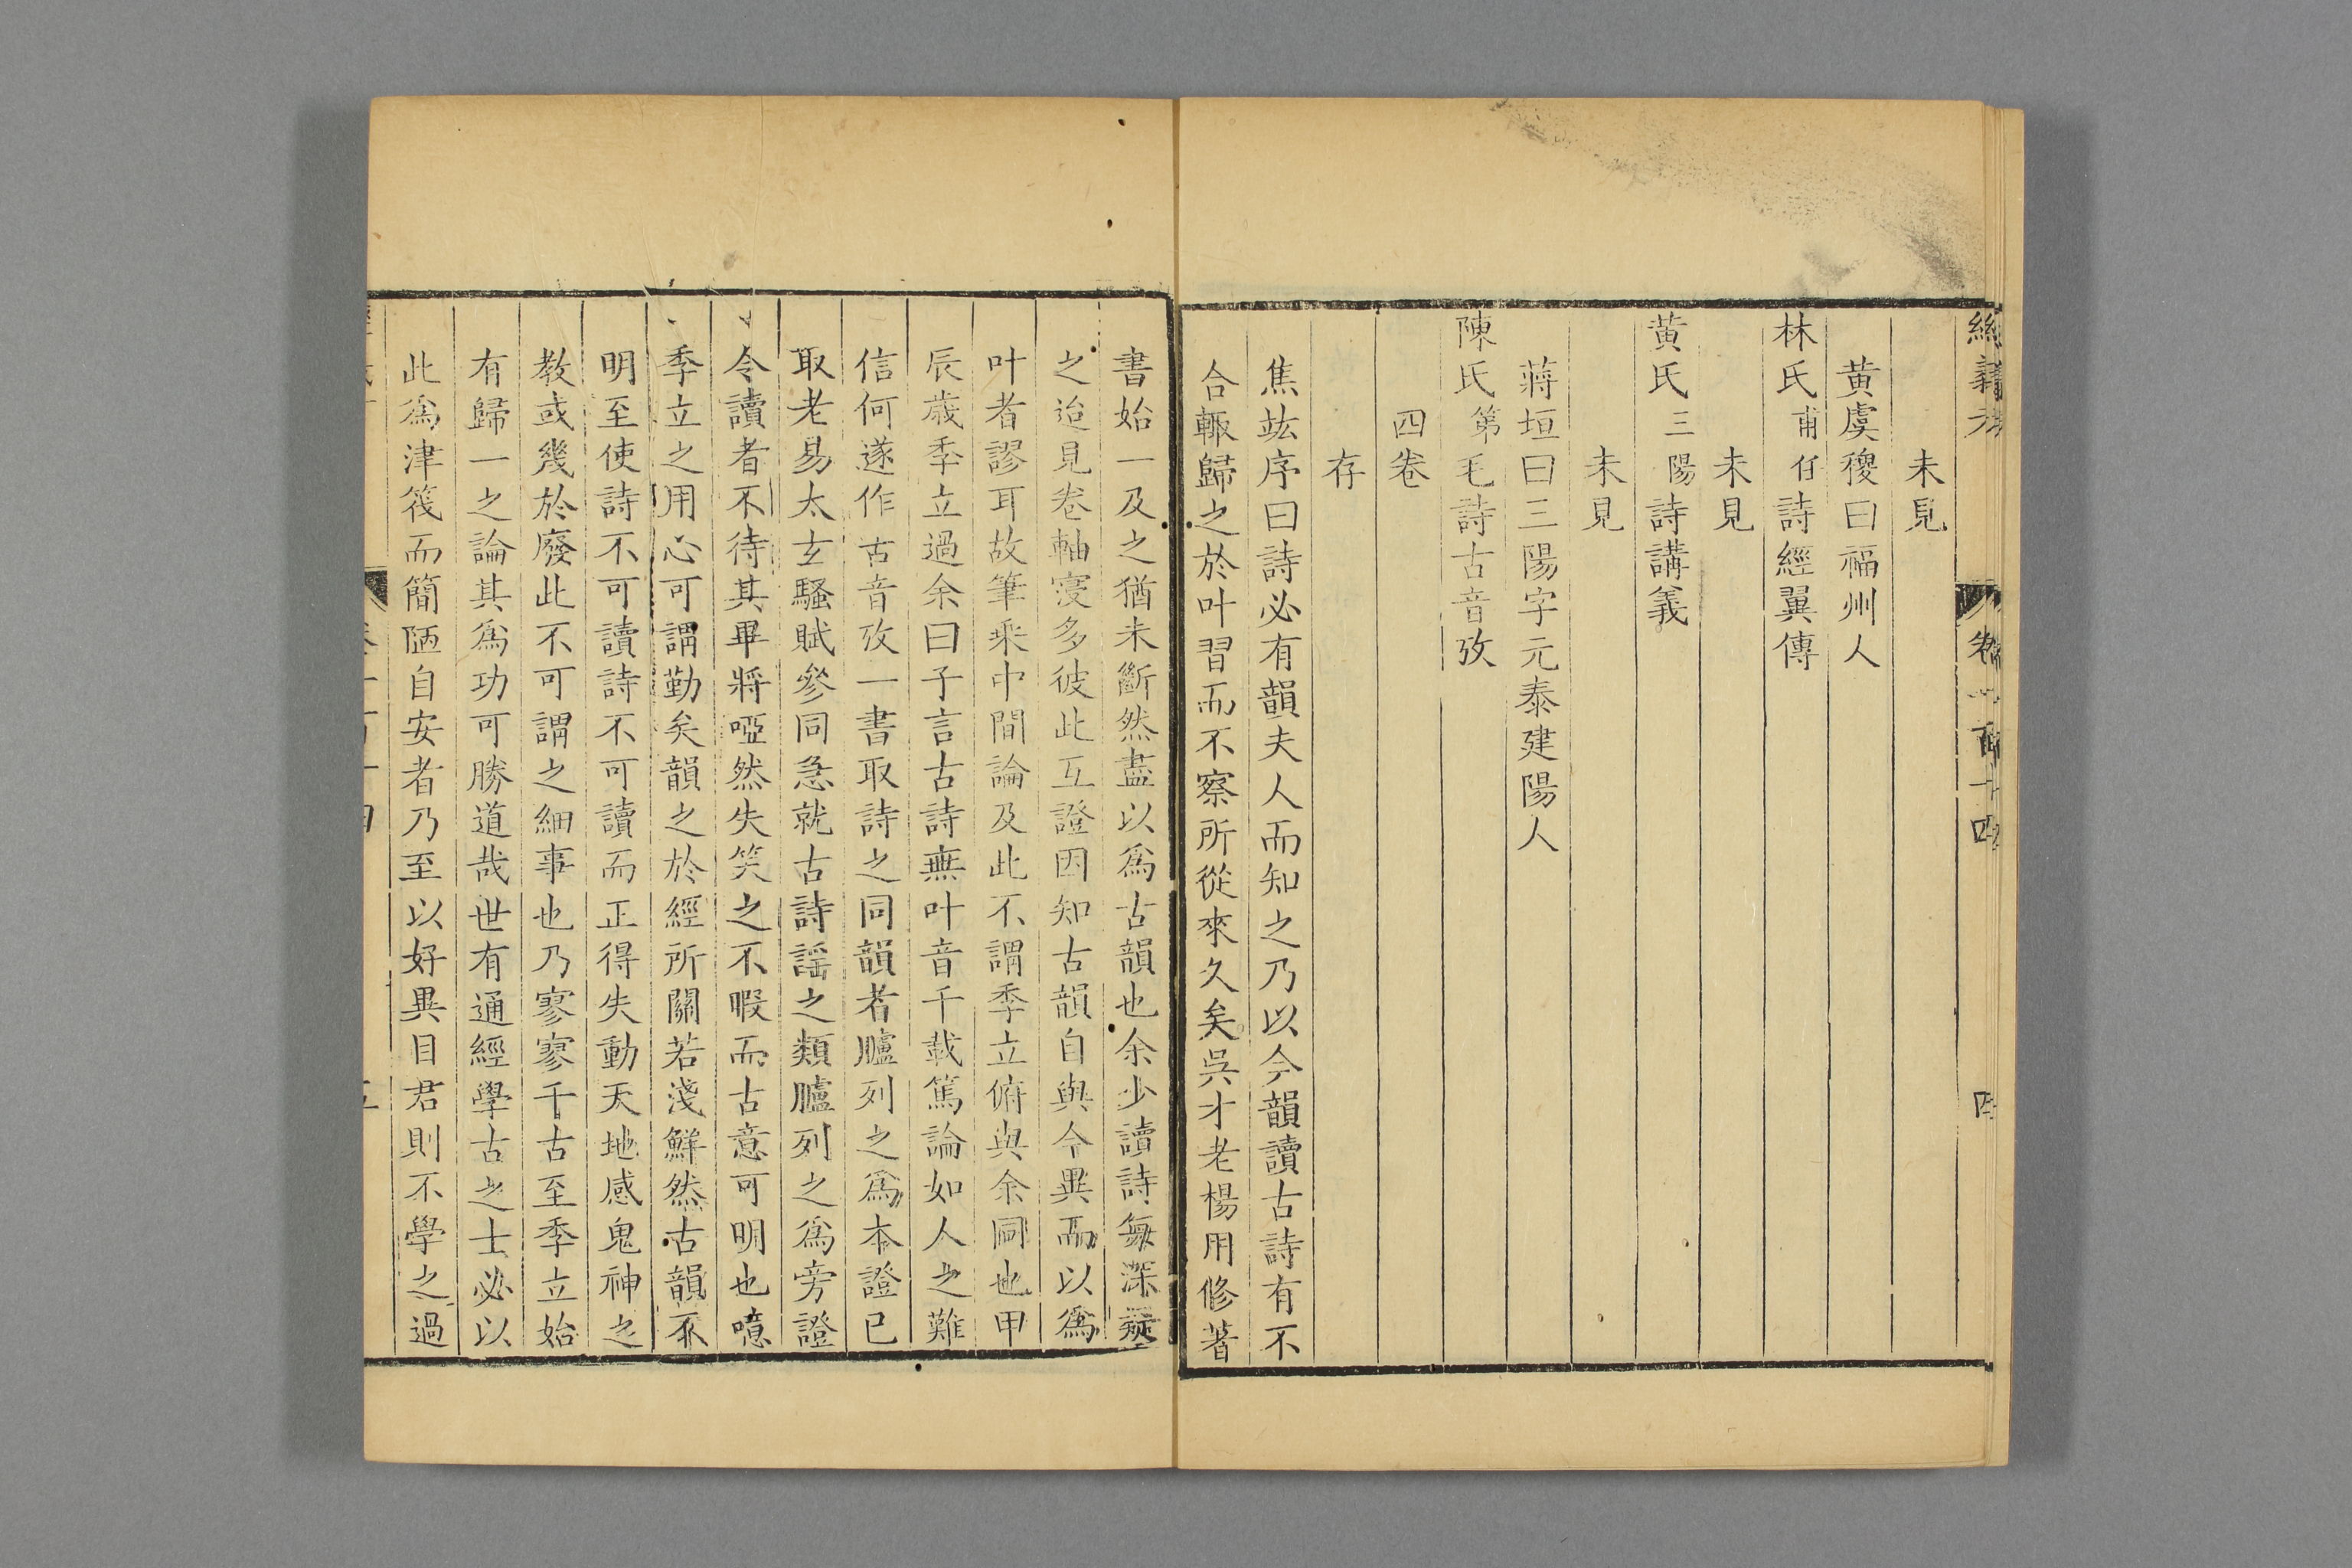 經義考
卷一百十四
四
未見
黃虞稷曰福州人
林氏甫任詩經翼傳
未見
黃氏三陽詩講義
未見
蔣垣曰三陽字元泰建陽人
陳氏第毛詩古音攷
四卷
存
焦竑序曰詩必有韻夫人而知之乃以今韻讀古詩有不
合輙歸之於叶習而不察所從來久矣吳才老楊用修著
書始一及之猶未斷然盡以爲古韻也余少讀詩每深疑
之迨見卷軸寖多彼此互證因知古韻自與今異而以爲
叶者謬耳故筆乘中間論及此不謂季立俯與余同也甲
辰歲季立過余曰子言古詩無叶音千載篤論如人之難
信何遂作古音攷一書取詩之同韻者臚列之爲本證已
取老易太玄騷賦參同急就古詩謡之類臚列之爲旁證
令讀者不待其畢將啞然失笑之不暇而古意可明也噫
季立之用心可謂勤矣韻之於經所關若淺鮮然古韻不
明至使詩不可讀詩不可讀而正得失動天地感鬼神之
教或幾於廢此不可謂之細事也乃寥寥千古至季立始
有歸一之論其爲功可勝道哉世有通經學古之士必以
此爲津筏而簡陋自安者乃至以好異目君則不學之過